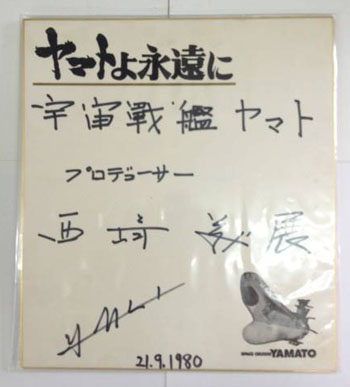 ヤマトよ永遠に
宇宙戦艦 ヤマト
プロデューサー
西崎 義展
21.9.1980
SPACE CRUISER YAMATO